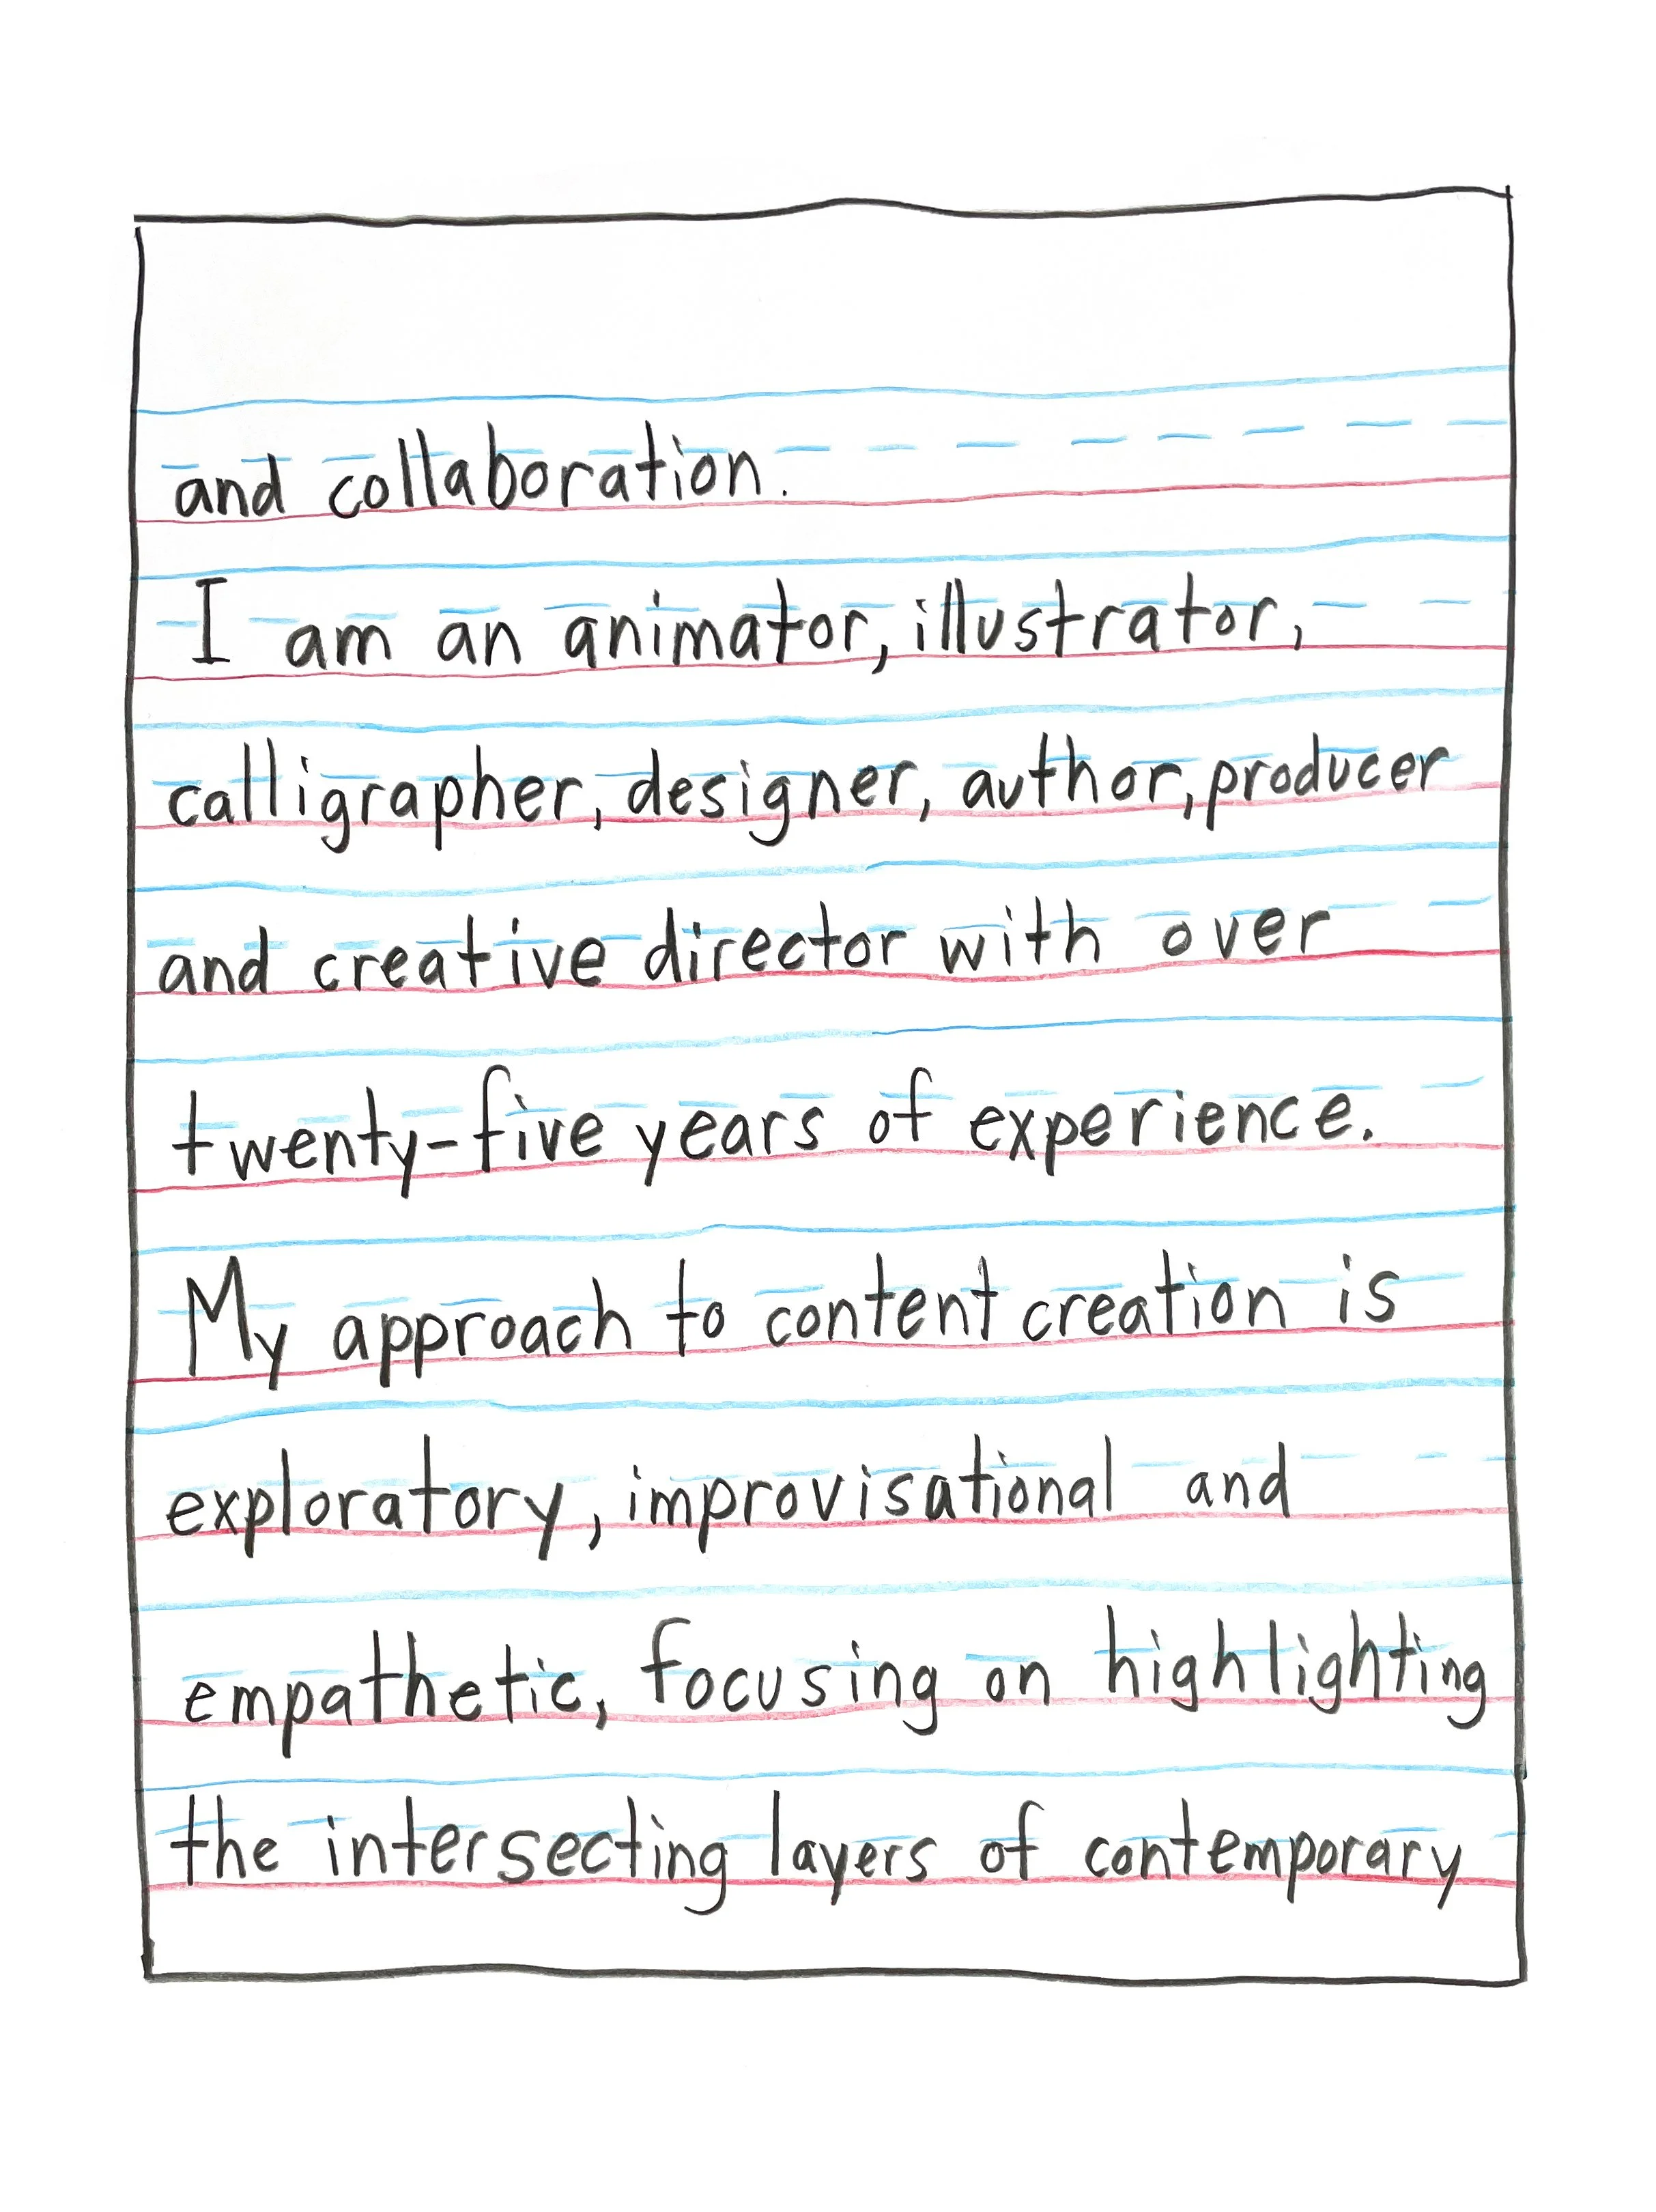 and collaboration.
I am an animator, illustrator,
calligrapher, designer, author, producer
and creative director with over
twenty-five years of experience.
My approach to content creation is
exploratory, improvisational and
empathetic, focusing on highlighting
the intersecting layers of contemporary